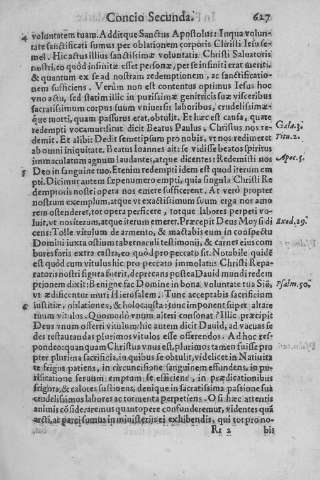 Concio Secunda. 627
4 voluntatem tuam. Addit que Sanctus Apostolus: In qua volun-
tate sanctificati sumus per oblationem corporis Christi Iesu se-
mel. Hic actus illius sanctissimæ voluntatis Christi Saluatoris
nostri, eo quòd infinitæ esset personæ, per se infiniti erat meriti,
& quantum ex se ad nostram redemptionem, ac sanctificatio-
nem sufficiens. Verùm non est contentus optimus Iesus hoc
vno actu, sed statim illic in purissimæ genitricis suæ visceribus
sacratissimum corpus suum vniuersis laboribus, crudelissimæ-
que morti, quam passurus erat, obtulit. Et hæc est causa, quare
redempti vocamur: sicut dicit Beatus Paulus, Christus nos re- Gala.3.
demit. Et alibi: Dedit semetipsum pro nobis, vt nos redimeret Tit.2.
ab omni iniquitate. Beatus Ioannes ait se vidisse beatos spiritus
immaculatum agnum laudantes, atque dicentes: Redemisti nos Apoc.5.
5 Deo in sanguine tuo. Etenim redempti idem est quod iterum em
pti. Dicimur autem sæpenumero empti, quia singula Christi Re
demptoris nostri opera nos emere sufficerent. At verò propter
nostrum exemplum, atque vt exactissimum suum erga nos amo
rem ostenderet, tot opera perficere, totque labores perpeti vo-
luit, vt nos iteratò, atque iterum emeret. Præcepit Deus Moysi di Exod.29.
cens: Tolle vitulum de armento, & mactabis eum in conspectu
Domini iuxta ostium tabernaculi testimonij, & carnes eius com
bures foris extra castra, eo quòd pro peccato sit. Notabile quidē
est quòd cum vitulus hic pro peccato immolatus Christi Repa-
ratoris nostri figura fuerit, deprecans postea Dauid mundi redem
ptionem dixit: Benigne fac Domine in bona voluntate tua Siō, Psalm.50.
vt ædificentur muri Hierusalem: Tunc acceptabis sacrificium
6 iustitiæ, oblationes, & holocausta: tunc imponent super altare
tuum vitulos. Quomodò vnum alteri consonat? Illic præcipit
Deus vnum offerri vitulum: hic autem dicit Dauid, ad vacuas se
des restaurandas plurimos vitulos esse offerendos. Ad hoc res-
pondeo: quòd quamquam Christus vnus est, plurimos tamen fuisse pro
pter plurima sacrificia, in quibus se obtulit, videlicet in Natiuita
te frigus patiens, in circuncisione sanguinem effundens, in pu-
rificatione seruum emptum se efficiens, in prædicationibus
frigora, & calores sustinens, denique in sacratissima passione suâ
crudelissimos labores ac tormenta perpetiens. O si hæc attentis
animis consideraremus quantopere confunderemur, videntes quā
arcti, ac parci sumus in ministerijs ei exhibendis, qui tot pro no-
Rr 2 bis